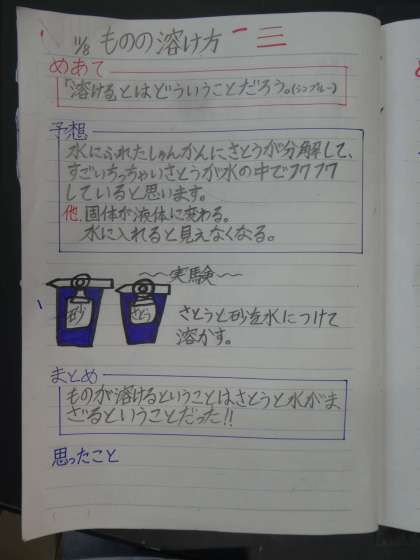 11/8 ものの溶け方
めあて
「溶ける」とはどういうことだろう。(シンプルー)
予想
水にふれたしゅんかんにさとうが分解して、
すごいちっちゃいさとうが水の中でプカプカ
していると思います。
他.固体が液体に変わる。
水に入れると見えなくなる。
〜実験〜
砂
さとう
さとうと砂を水につけて
溶かす。
まとめ
ものが溶けるということはさとうと水がま
ざるということだった!!
思ったこと